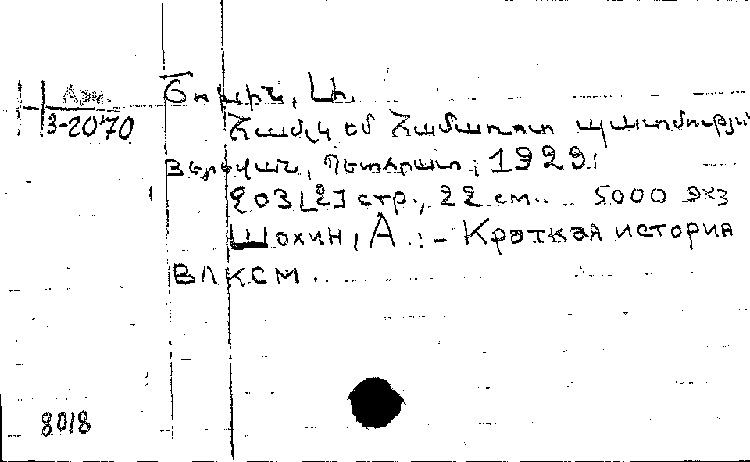 Арм.
3-20170
Շոխին, Ա.
Համլկ եմ համառոտ պատմությու
Յերևան, Պետհրատ, 1929.
203 [2] стр., 22 см. 5000 экз
Шохин, А. :- Краткая история
ВЛКСМ
8018